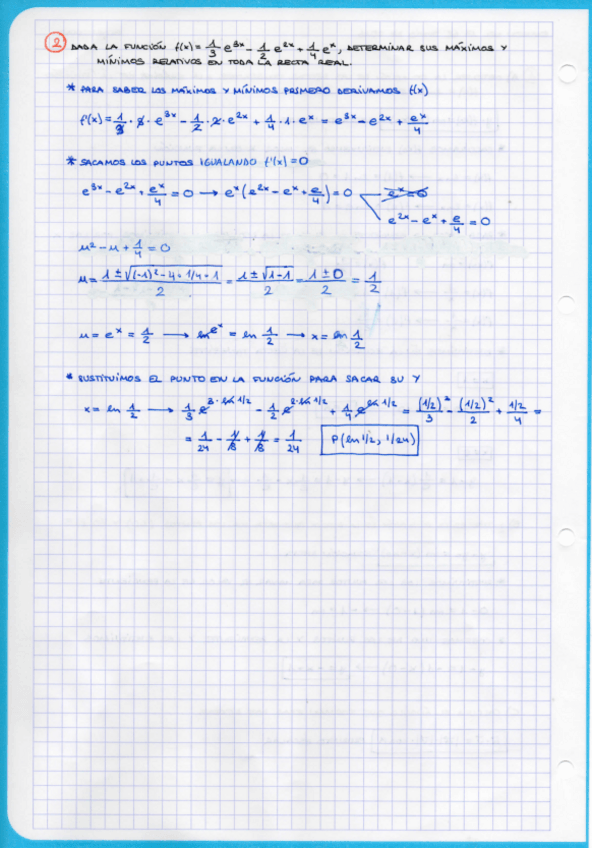 2 DADA LA FUNCIÓN f(x) = 1/3 e^3x - 1/2 e^2x + 1/4 e^x, DETERMINAR SUS MÁXIMOS Y
MÍNIMOS RELATIVOS EN TODA LA RECTA REAL.
* PARA SABER LOS MÁXIMOS Y MÍNIMOS PRIMERO DERIVAMOS f(x)
f'(x) = 1/3 · 3 · e^3x - 1/2 · 2 · e^2x + 1/4 · 1 · e^x = e^3x - e^2x + e^x/4
* SACAMOS LOS PUNTOS IGUALANDO f'(x) = 0
e^3x - e^2x + e^x/4 = 0 → e^x (e^2x - e^x + e/4) = 0 e^x = 0
e^2x - e^x + e/4 = 0
u² - u + 1/4 = 0
u = 1 ± √((-1)² - 4 · 1/4 · 1) / 2 = 1 ± √(1-1) / 2 = 1 ± 0 / 2 = 1/2
u = e^x = 1/2 → ln e^x = ln 1/2 → x = ln 1/2
* SUSTITUIMOS EL PUNTO EN LA FUNCIÓN PARA SACAR SU Y
x = ln 1/2 → 1/3 e^3·ln 1/2 - 1/2 e^2·ln 1/2 + 1/4 e^ln 1/2 = (1/2)³/3 - (1/2)²/2 + 1/2/4 =
= 1/24 - 1/8 + 1/8 = 1/24 P(ln 1/2, 1/24)